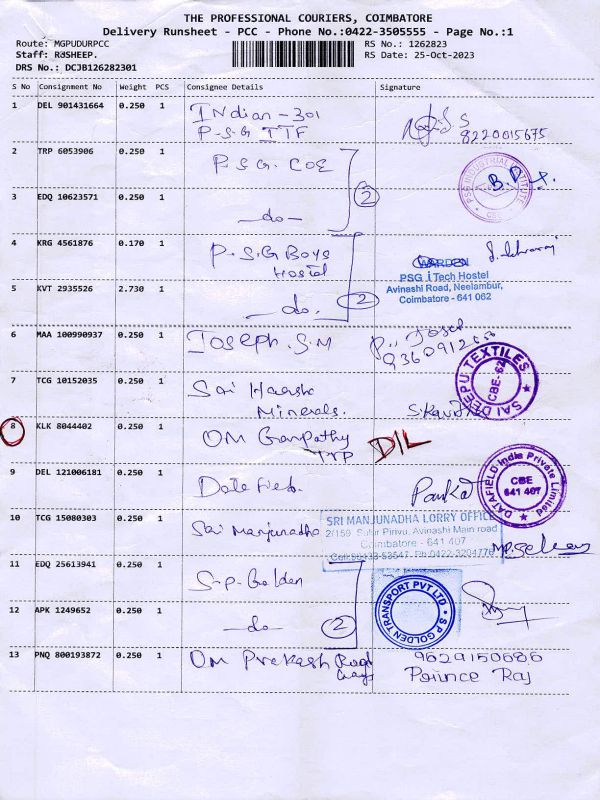 THE PROFESSIONAL COURIERS, COIMBATORE
Delivery Runsheet - PCC - Phone No.:0422-3505555 - Page No.:1
Route: MGPUDURPCC
RS No.: 1262823
Staff: RdSHEEP.
RS Date: 25-Oct-2023
DRS No.: DCJB126282301
S No Consignment No Weight PCS Consignee Details Signature
1 DEL 901431664 0.250 1 Indian - 301
P.S.G ITF
S
8220015675
2 TRP 6053906 0.250 1 P.S.G. COE
PSG INDUSTRIAL INSTITUTE
CBE
3 EDQ 10623571 0.250 1 -do-
2
4 KRG 4561876 0.170 1 P.S.G Boys
Hostel
WARDEN
PSG iTech Hostel
Avinashi Road, Neelambur,
Coimbatore - 641 062
5 KVT 2935526 2.730 1 -do.
2
6 MAA 100990937 0.250 1 Joseph. S.M
SAI DEEPU TEXTILES
CBE-62
7 TCG 10152035 0.250 1 Sai Harsha
Minerals.
8 KLK 8044402 0.250 1 OM Ganpathy
TTP
D/L
9 DEL 121006181 0.250 1 Datafield.
Pankaj
DATAFIELD India Private Limited
CBE
641 407
10 TCG 15080303 0.250 1 Sri Manjunadha
SRI MANJUNADHA LORRY OFFICE
2/159, Sulur Pirivu, Avinashi Main road
Coimbatore - 641 407
11 EDQ 25613941 0.250 1 S.P. Golden
S P GOLDEN TRANSPORT PVT LTD
12 APK 1249652 0.250 1 -do-
2
13 PNQ 800193872 0.250 1 OM Prakash Road
9629150686
Prince Raj